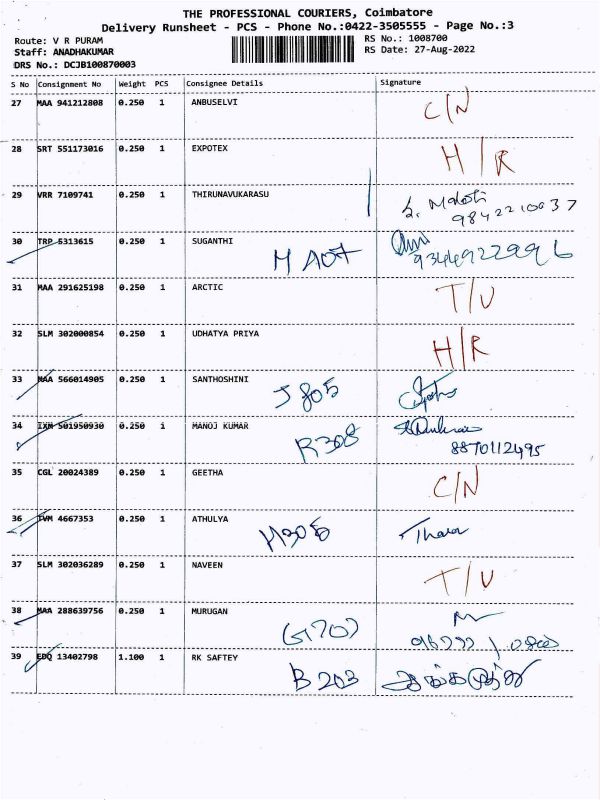 THE PROFESSIONAL COURIERS, Coimbatore
Delivery Runsheet - PCS - Phone No.:0422-3505555 - Page No.:3
Route: V R PURAM
RS No.: 1008700
Staff: ANADHAKUMAR
RS Date: 27-Aug-2022
DRS No.: DCJB100870003
S No Consignment No Weight PCS Consignee Details Signature
27 MAA 941212808 0.250 1 ANBUSELVI C/N
28 SRT 551173016 0.250 1 EXPOTEX H/R
29 VRR 7109741 0.250 1 THIRUNAVUKARASU
9842210037
30 TRP 5313615 0.250 1 SUGANTHI
M A07 9344922996
31 MAA 291625198 0.250 1 ARCTIC T/U
32 SLM 302000854 0.250 1 UDHATYA PRIYA H/R
33 MAA 566014905 0.250 1 SANTHOSHINI
J 805
34 IXM 501950930 0.250 1 MANOJ KUMAR
R308 8870112495
35 CGL 20024389 0.250 1 GEETHA C/N
36 TVM 4667353 0.250 1 ATHULYA
M308 Thara
37 SLM 302036289 0.250 1 NAVEEN T/U
38 MAA 288639756 0.250 1 MURUGAN
G1707
39 EDQ 13402798 1.100 1 RK SAFTEY
B 203